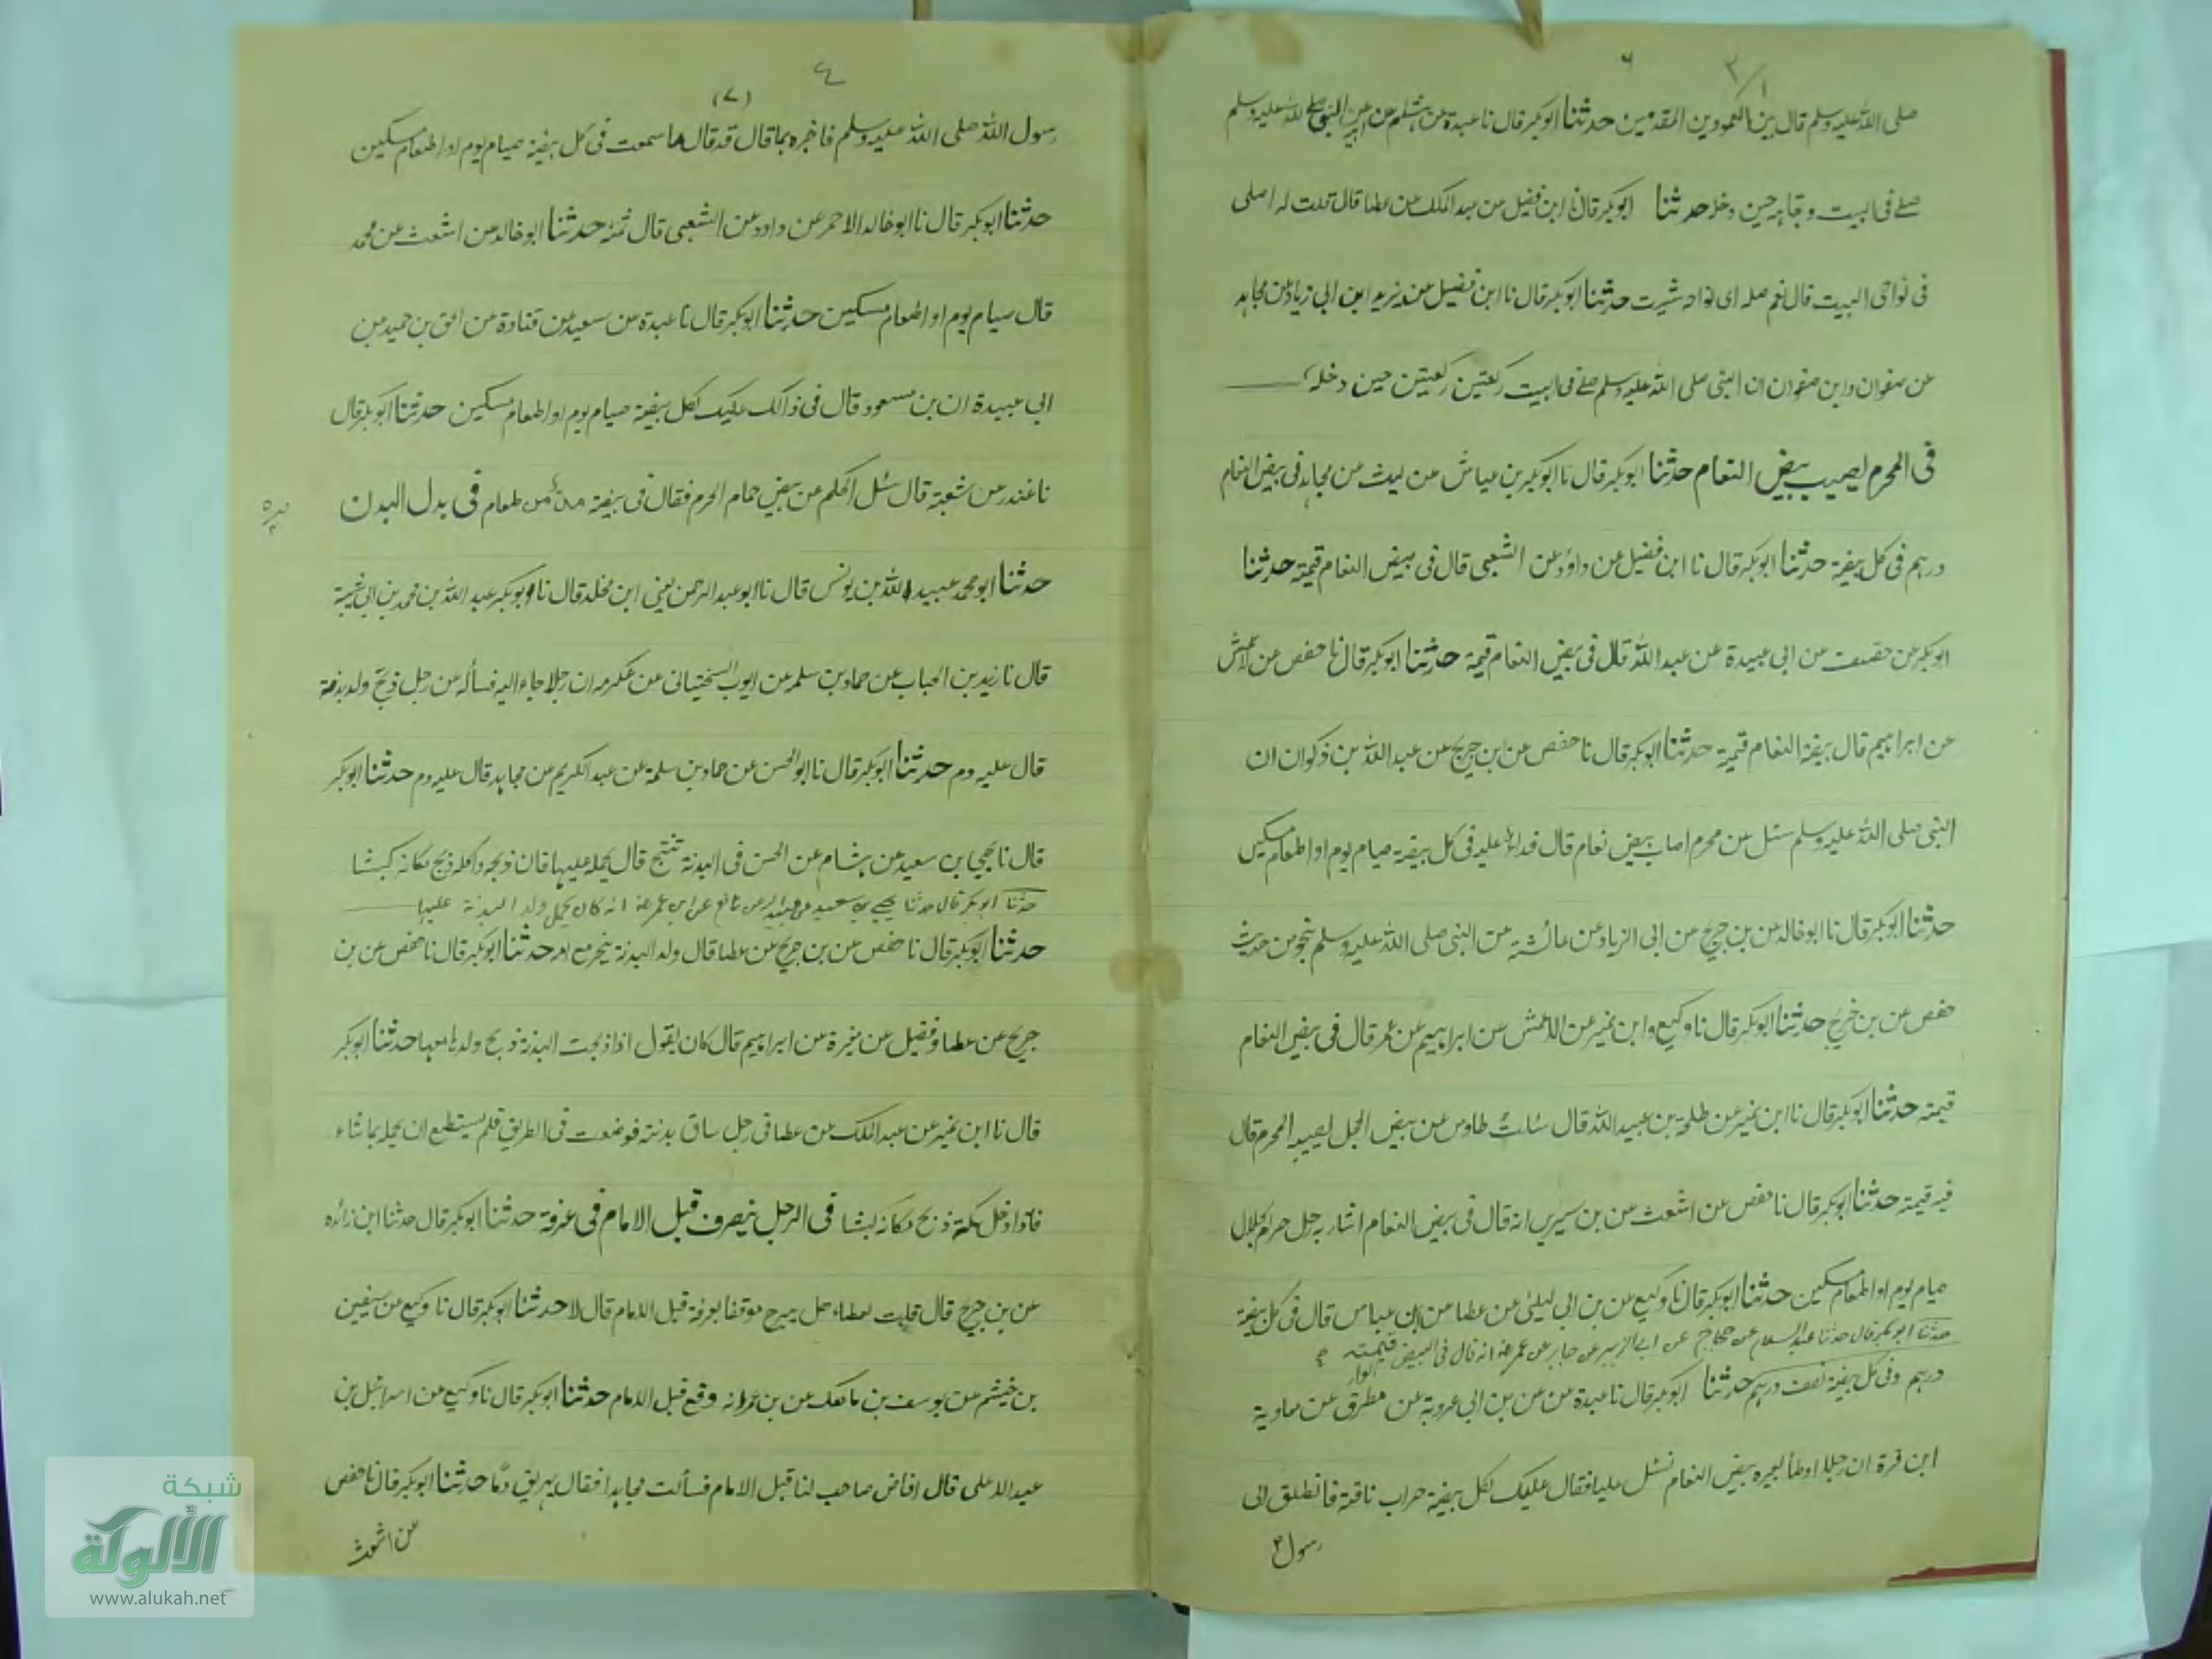 ٣/١
٦
صلى الله عليه وسلم قال بين العمودين المقدمين حدثنا ابوبكر قال نا عبدة عن هشام عن ابيه ان النبي صلى الله عليه وسلم
صلے فى البيت وتجاهه حين دخله حدثنا ابوبكر قال نا ابن فضيل عن عبد الملك عن عطا قال قلت له اصلى
فى نواحى البيت قال نعم صله اى نواحه شيت حدثنا ابوبكر قال نا ابن فضيل عن يزيد ابن ابى زياد عن مجاهد
عن صفوان وابن صفوان ان النبى صلى الله عليه وسلم صلے فى البيت ركعتين ركعتين حين دخله
فى المحرم يصيب بيض النعام حدثنا ابوبكر قال نا ابوبكر بن عياش عن ليث عن مجاهد فى بيض النعام
درهم فى كل بيضة حدثنا ابوبكر قال نا ابن فضيل عن داؤد عن الشعبى قال فى بيض النعام قيمته حدثنا
ابوبكر عن خصيف عن ابى عبيدة عن عبد الله قال فى بيض النعام قيمة حدثنا ابوبكر قال نا حفص عن الاعمش
عن ابراهيم قال بيضة النعام قيمة حدثنا ابوبكر قال نا حفص عن ابن جريج عن عبد الله بن ذكوان ان
النبى صلى الله عليه وسلم سئل عن محرم اصاب بيض نعام قال فداء عليه فى كل بيضة صيام يوم او اطعام مسكين
حدثنا ابوبكر قال نا ابوخالد عن بن جريج عن ابى الزياد عن عائشة عن النبى صلى الله عليه وسلم بنحو من حديث
حفص عن بن جريج حدثنا ابوبكر قال نا وكيع وابن نمير عن الاعمش عن ابراهيم عن عمر قال فى بيض النعام
قيمته حدثنا ابوبكر قال نا ابن نمير عن طلحة بن عبيد الله قال سئلت طاوس عن بيض الحجل يصيبه المحرم قال
فيه قيمته حدثنا ابوبكر قال نا حفص عن اشعث عن بن سيرين انه قال فى بيض النعام اشار به رجل حرام لحلال
صيام يوم او اطعام مسكين حدثنا ابوبكر قال نا وكيع عن بن ابى ليلى عن عطا عن ابن عباس قال فى كل بيضة
حدثنا ابوبكر قال حدثنا عبد السلام عن حجاج عن ابى الزبير عن جابر عن عمر انه قال فى البيض قيمته
درهم وفى كل بيضة نصف درهم حدثنا ابوبكر قال نا عبدة عن بن ابى عروبة عن مطرق عن معاوية
ابن قرة ان رجلا اوطأ بعيره بيض النعام فسئل عليا فقال عليك لكل بيضة ضراب ناقة فانطلق الى
رسول
٤
(٧)
رسول الله صلى الله عليه وسلم فاخبره بما قال قد قال ما سمعت فى كل بيضة صيام يوم او اطعام مسكين
حدثنا ابوبكر قال نا ابوخالد الاحمر عن داود عن الشعبى قال ثمنه حدثنا ابوخالد عن اشعث عن محمد
قال صيام يوم او اطعام مسكين حدثنا ابوبكر قال نا عبدة عن سعيد عن قتادة عن بن حميد بن
ابى عبيدة ان بن مسعود قال فى ذالك عليك لكل بيضة صيام يوم او اطعام مسكين حدثنا ابوبكر قال
نا غندر عن شعبة قال سئل الحكم عن بيض حمام الحرم فقال فى بيضة من طعام فى بدل البدن
حدثنا ابومحمد عبيد الله بن يونس قال نا ابوعبد الرحمن يعنى ابن مخلد قال نا ابوبكر عبد الله بن محمد بن ابى شيبة
قال نا زيد بن الحباب عن حماد بن سلمه عن ايوب السختيانى عن عكرمه ان رجلا جاء اليه فسأله عن رجل ذبح ولد بدنة
قال عليه دم حدثنا ابوبكر قال نا ابوالحسن عن حماد بن سلمة عن عبد الكريم عن مجاهد قال عليه دم حدثنا ابوبكر
قال نا يحيى بن سعيد عن هشام عن الحسن فى البدنة تنتج قال يحمله عليها فان ذبحه واكله ذبح مكانه كبشا
حدثنا ابوبكر قال حدثنا يحيى بن سعيد عن عبيد الله عن نافع عن ابن عمر انه كان يحمل ولد البدنة عليها
حدثنا ابوبكر قال نا حفص عن بن جريج عن عطا قال ولد البدنة ينحر مع امه حدثنا ابوبكر قال نا حفص عن بن
جريج عن عطا وفضيل عن مغيرة عن ابراهيم قال كان يقول اذا ذبحت البدنة ذبح ولدها معها حدثنا ابوبكر
قال نا ابن نمير عن عبد الملك عن عطا فى رجل ساق بدنته فوضعت فى الطريق فلم يستطع ان يحمله بما شاء
فاذا دخل مكة ذبح مكانه كبشا فى الرجل ينصرف قبل الامام فى عرفة حدثنا ابوبكر قال حدثنا ابن زائده
عن بن جريج قال قلت لعطاء هل يبرح موقفا بعرفة قبل الامام قال لا حدثنا ابوبكر قال نا وكيع عن سفين
بن خيثم عن يوسف بن ماهك عن بن عمر انه وقع قبل الامام حدثنا ابوبكر قال نا وكيع عن اسرائيل بن
عبد الاعلى قال افاض صاحب لنا قبل الامام فسألت مجاهدا فقال يهريق دما حدثنا ابوبكر قال نا حفص
عن اشعث
شبكة
الألوكة
www.alukah.net